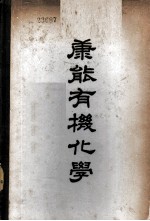 23697
康能有機化學